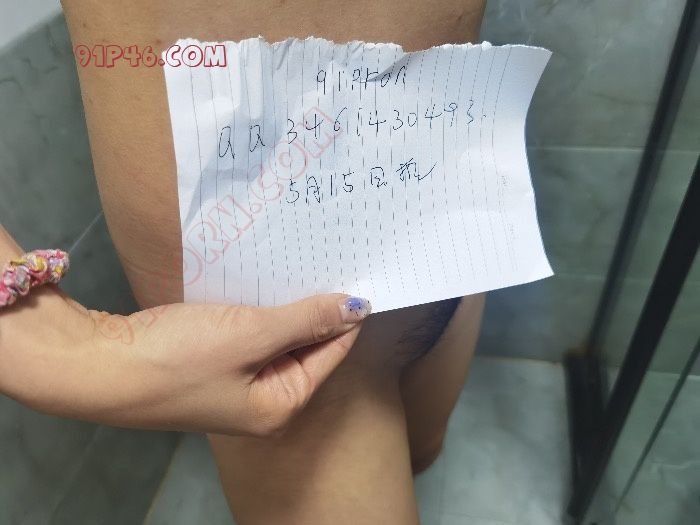 91P46.COM
91porn
QQ 3461430493.
5月15日
91PORN.COM